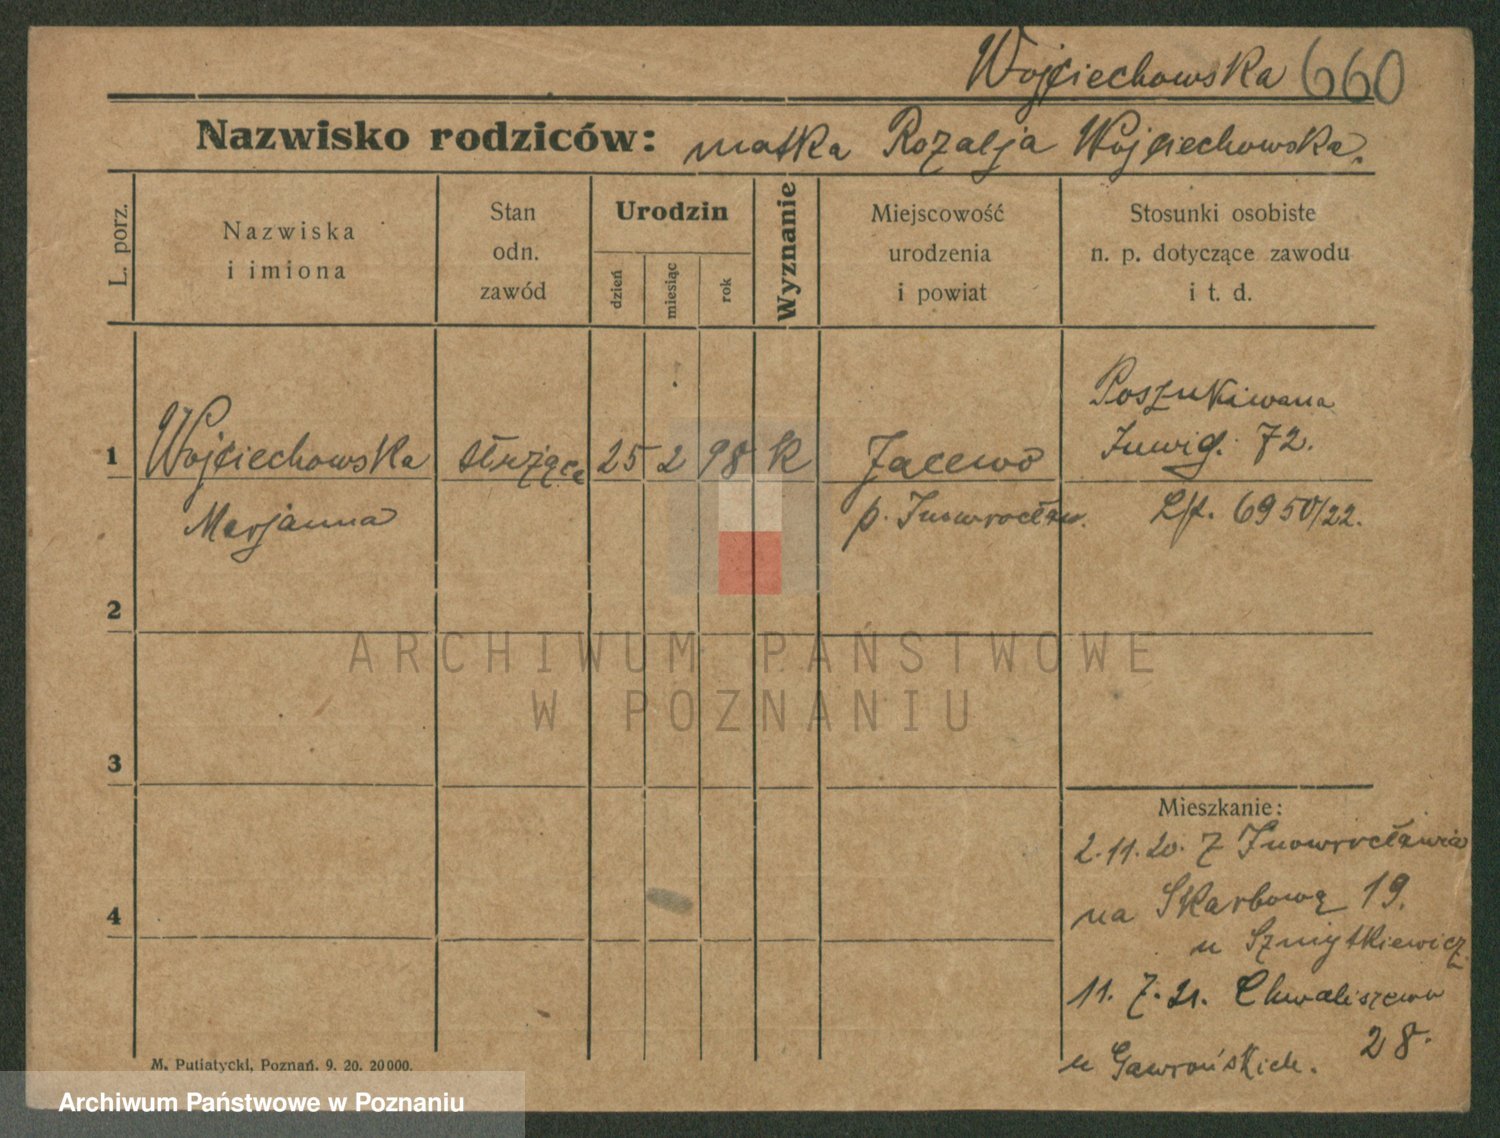 Wojciechowska 660
Nazwisko rodziców: matka Rozalja Wojciechowska.
L. porz.
Nazwiska
i imiona
Stan
odn.
zawód
Urodzin
dzień
miesiąc
rok
Wyznanie
Miejscowość
urodzenia
i powiat
Stosunki osobiste
n. p. dotyczące zawodu
i t. d.
Poszukiwana
1 Wojciechowska służąca 25 2 98 K Jacewo
72.
Marjanna p. Inowrocław. 6950/22.
2
ARCHIWUM PAŃSTWOWE
W POZNANIU
3
Mieszkanie:
2.11.20. z Inowrocławia
4 na Skarbową 19.
u Szmytkiewicz
11. 7. 21. Chwaliszewo
28.
u Gawrońskich.
M. Putiatycki, Poznań. 9. 20. 20000.
Archiwum Państwowe w Poznaniu